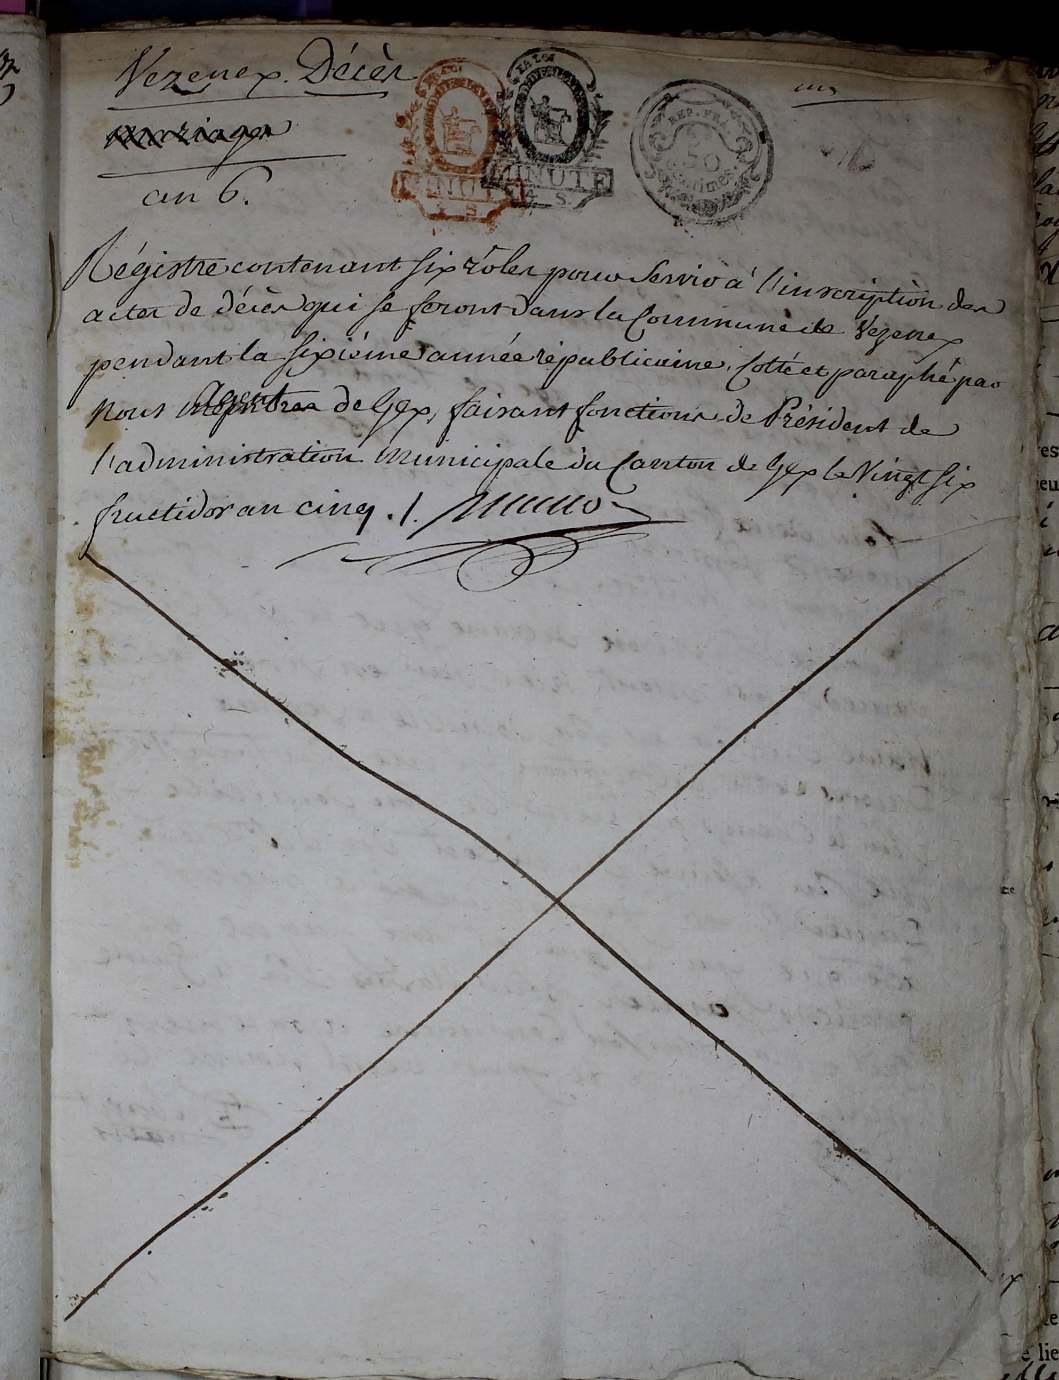 Vezenex. Décès
mariages
an 6.
un
MINUTE
4 S.
MINUTE
4 S.
REP. FRA.
50
centimes.
Régistre contenant six rôles pour servir à l'inscription des
actes de décès qui se feront dans la Commune de Vezenex
pendant la sixiéme année républicaine, Cotté et paraphé par
Nous Agent de Gex, faisant fonctions de Président de
l'administration Municipale du Canton de Gex le Vingt six
fructidor an cinq ./.